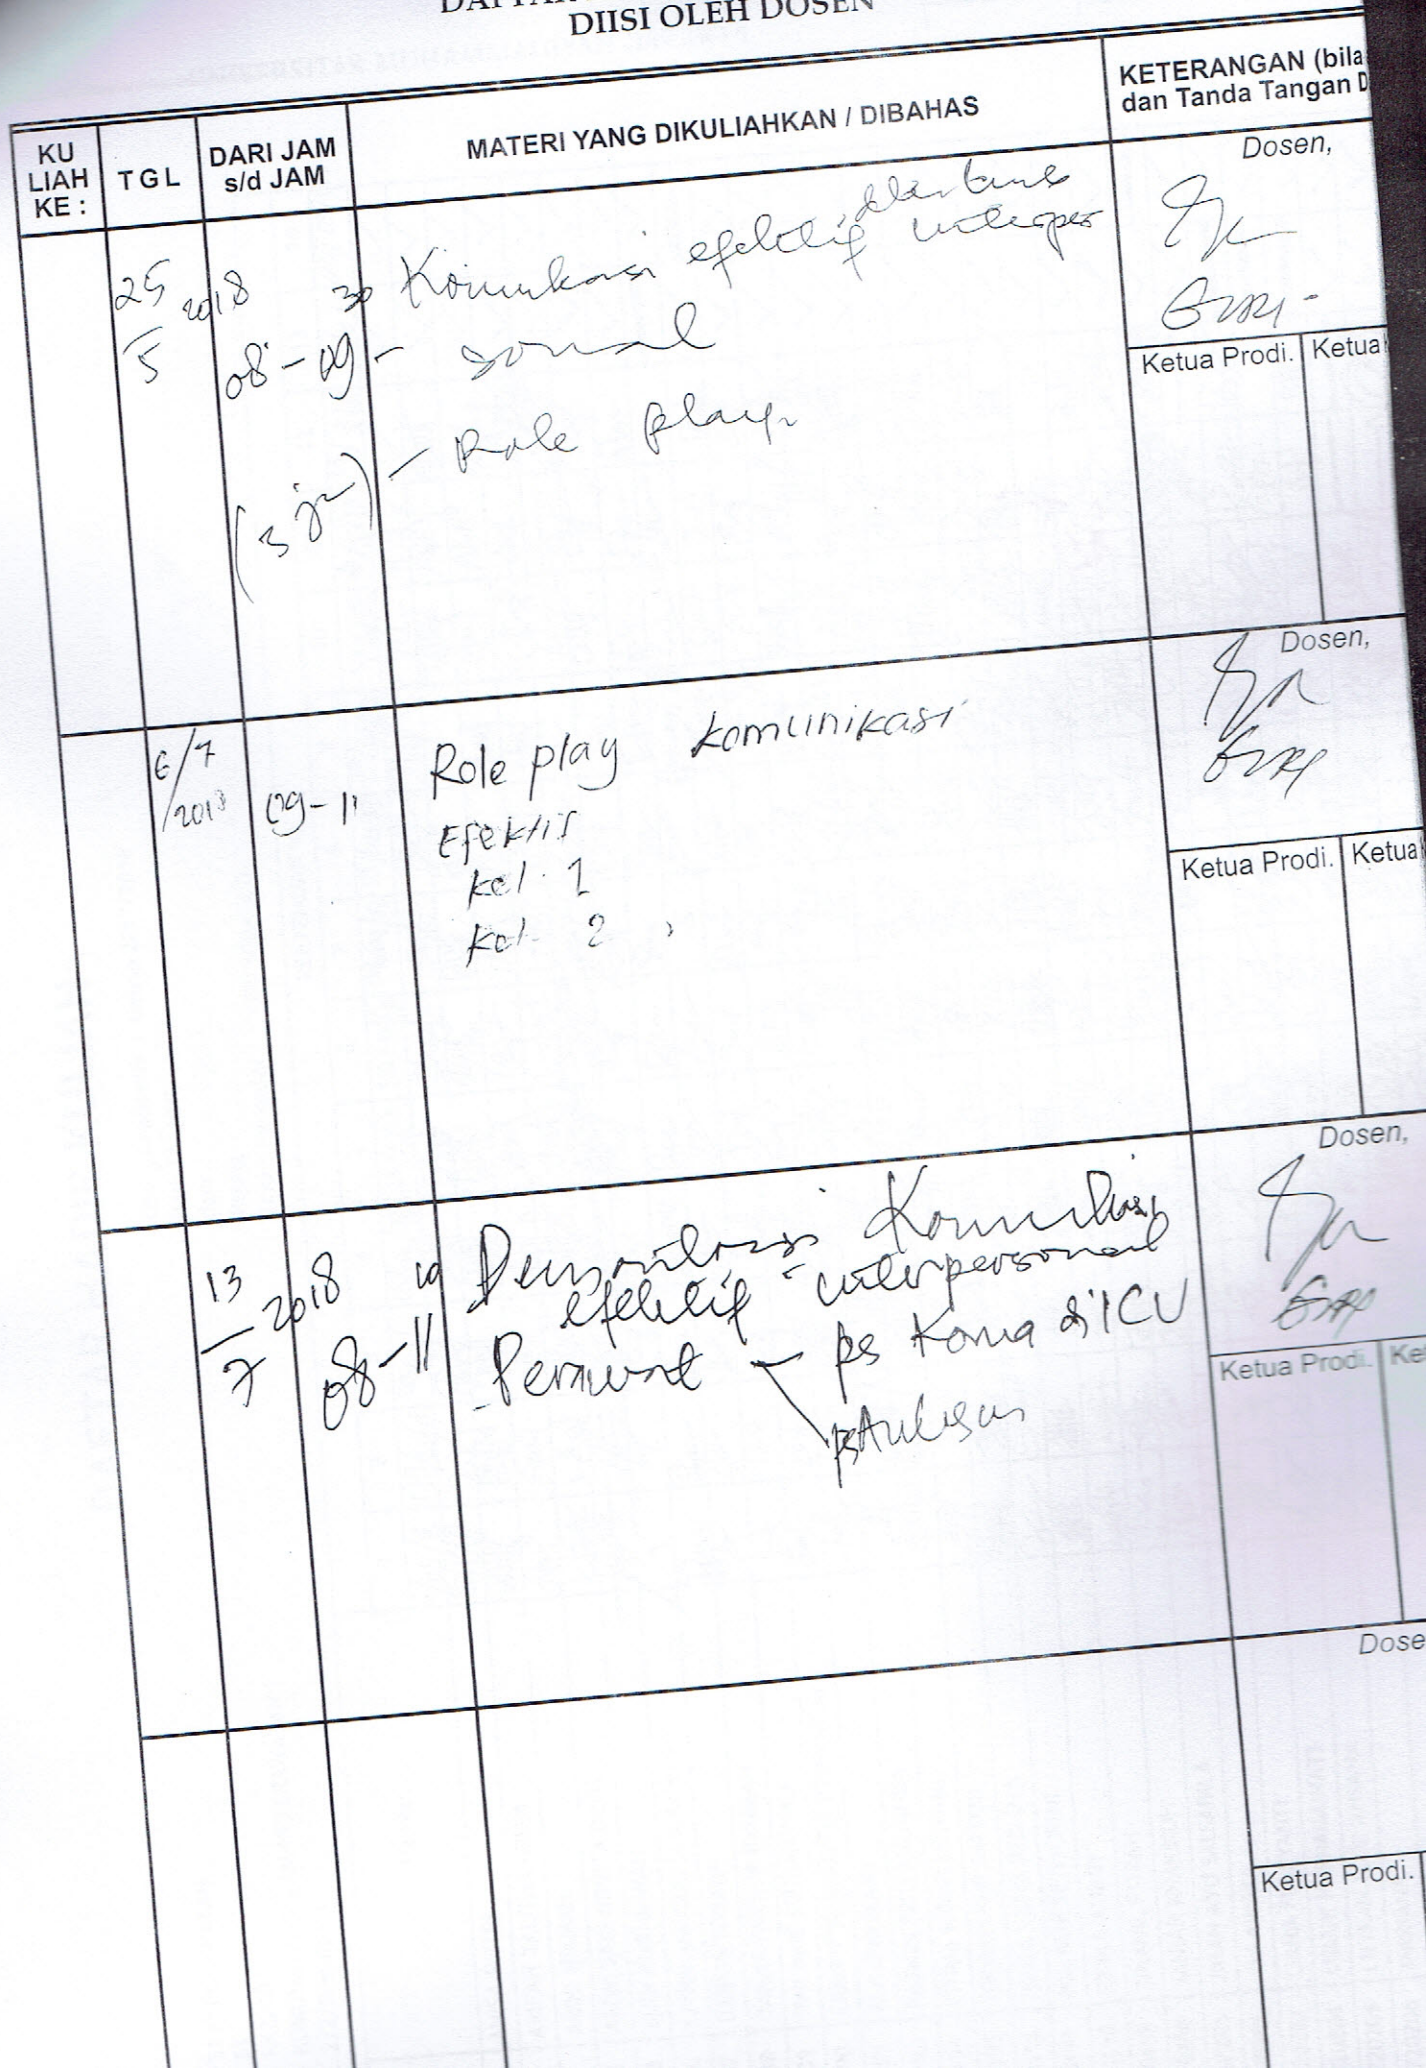 DIISI OLEH DOSEN
KU LIAH KE :
TGL
DARI JAM s/d JAM
MATERI YANG DIKULIAHKAN / DIBAHAS
KETERANGAN (bila
dan Tanda Tangan D
25/5 2018
08-09 30
(3 jm)
Komunikasi efektif interper
- sonal
- Role play
Dosen,
Ketua Prodi.
Ketua
6/7/2018
09-11
Role play komunikasi
Efektif
kel. 1
kel. 2
Dosen,
Ketua Prodi.
Ketua
13/7 2018
08-11 10
Demontrasi Komunikasi
efektif interpersonal
Perawat - ps Koma di ICU
ps
Dosen,
Ketua Prodi.
Ke
Dose
Ketua Prodi.